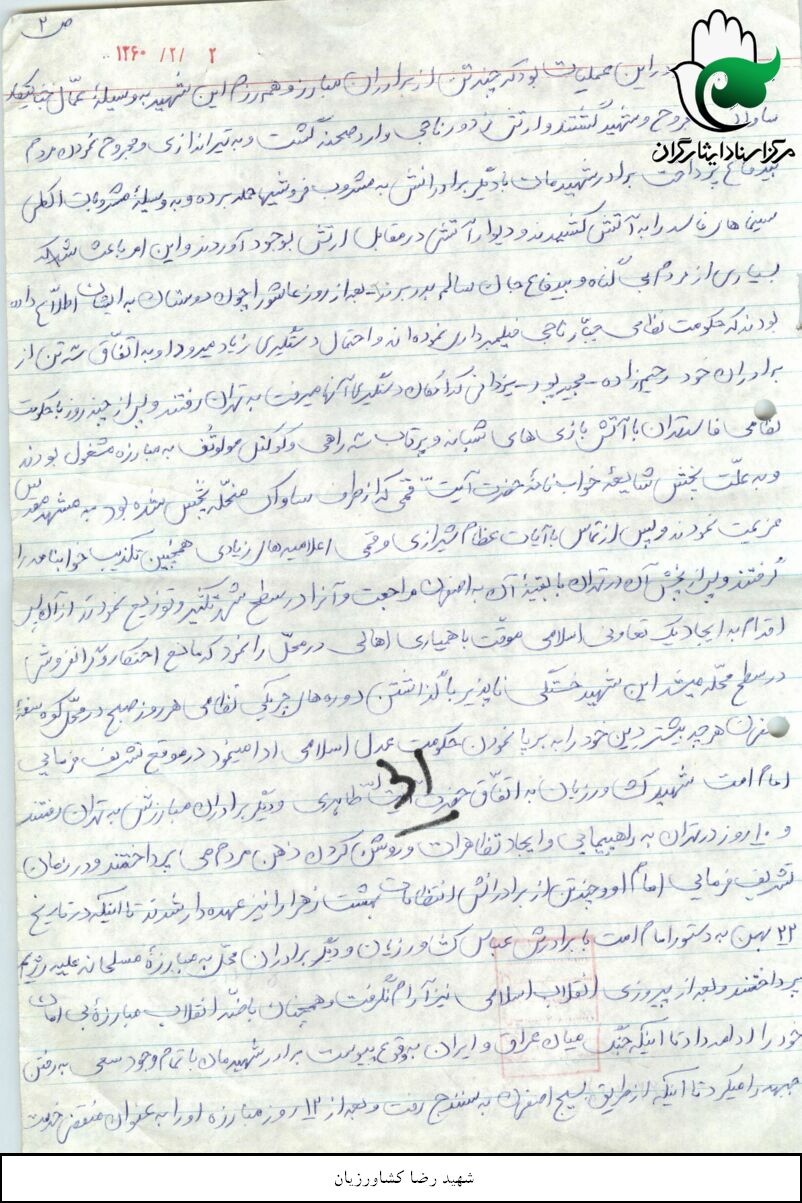 ص ۲
۱۳۶۰ /۲/ ۲
مرکز اسناد ایثارگران
در این عملیات بود که چند تن از برادران مبارز و همرزم این شهید به وسیلهٔ عمّال جنایتکار
مجروح و شهید گشتند و ارتش مزدور ناجی وارد صحنه گشت و به تیراندازی و مجروح نمودن مردم
بیدفاع پرداخت برادر شهیدمان با دیگر برادرانش به مشروب فروشیها حمله برده و به وسیلهٔ مشروبات الکلی
سینماهای فاسد را به آتش کشیدند و دیوار آتشی در مقابل ارتش بوجود آوردند و این امر باعث شد که
بسیاری از مردم بی گناه و بیدفاع جان سالم بدر برند - بعد از روز عاشورا چون دوستان به ایشان اطلاع داده
بودند که حکومت نظامی جبّار ناجی فیلمبرداری نموده اند و احتمال دستگیری زیاد میرود او به اتفّاق سه تن از
برادران خود - رحیم زاده - مجیدپور - یزدانی که امکان دستگیری آنها میرفت به تهران رفتند و پس از چند روز با حکومت
نظامی فاسد تهران با آتش بازی های شبانه و پرتاب سه راهی و کوکتل مولوتف به مبارزه مشغول بودند
و به علّت پخش شایعهٔ خواب نامهٔ حضرت آیت ا... قمی که از طرف ساواک منحلّه پخش شده بود به مشهد مقدس
عزیمت نمودند و پس از تماس با آیات عظام شیرازی و قمی اعلامیه های زیادی همچنین تکذیب خوابنامه را
گرفتند و پس از پخش آن در تهران با بقیهٔ آن به اصفهان مراجعت و آنرا در سطح شهر تکثیر و توزیع نمودند از آن پس
اقدام به ایجاد یک تعاونی اسلامی موقّت با همیاری اهالی در محلّ را نمود که مانع احتکار و گرانفروشی
در سطح محلّه میشد این شهید خستگی ناپذیر با گذاشتن دوره های چریکی نظامی هر روز صبح در محلّ کوه صفهٔ
اصفهان هر چه بیشتر دین خود را به برپا نمودن حکومت عدل اسلامی ادا مینمود در موقع تشریف فرمایی
امام امت شهید کشاورزیان به اتفّاق حضرت آیت ا... طاهری و دیگر برادران مبارزش به تهران رفتند
و ۱۰ روز در تهران به راهپیمایی و ایجاد تظاهرات و روشن کردن ذهن مردم می پرداختند و در زمان
تشریف فرمایی امام او و چند تن از برادرانش انتظامات بهشت زهرا را نیز عهده دار شدند تا اینکه در تاریخ
۲۲ بهمن به دستور امام امت با برادرش عباس کشاورزیان و دیگر برادران محلّ به مبارزهٔ مسلحانه علیه رژیم
پرداختند و بعد از پیروزی انقلاب اسلامی نیز آرام نگرفت و همچنان با ضدّ انقلاب مبارزهٔ بی امان
خود را ادامه داد تا اینکه جنگ میان عراق و ایران به وقوع پیوست برادر شهیدمان با تمام وجود سعی به رفتن
جبهه را میکرد تا اینکه از طریق بسیج اصفهان به سنندج رفت و بعد از ۱۲ روز مبارزه او را به عنوان منقضی خدمت
۳۱
شهید رضا کشاورزیان